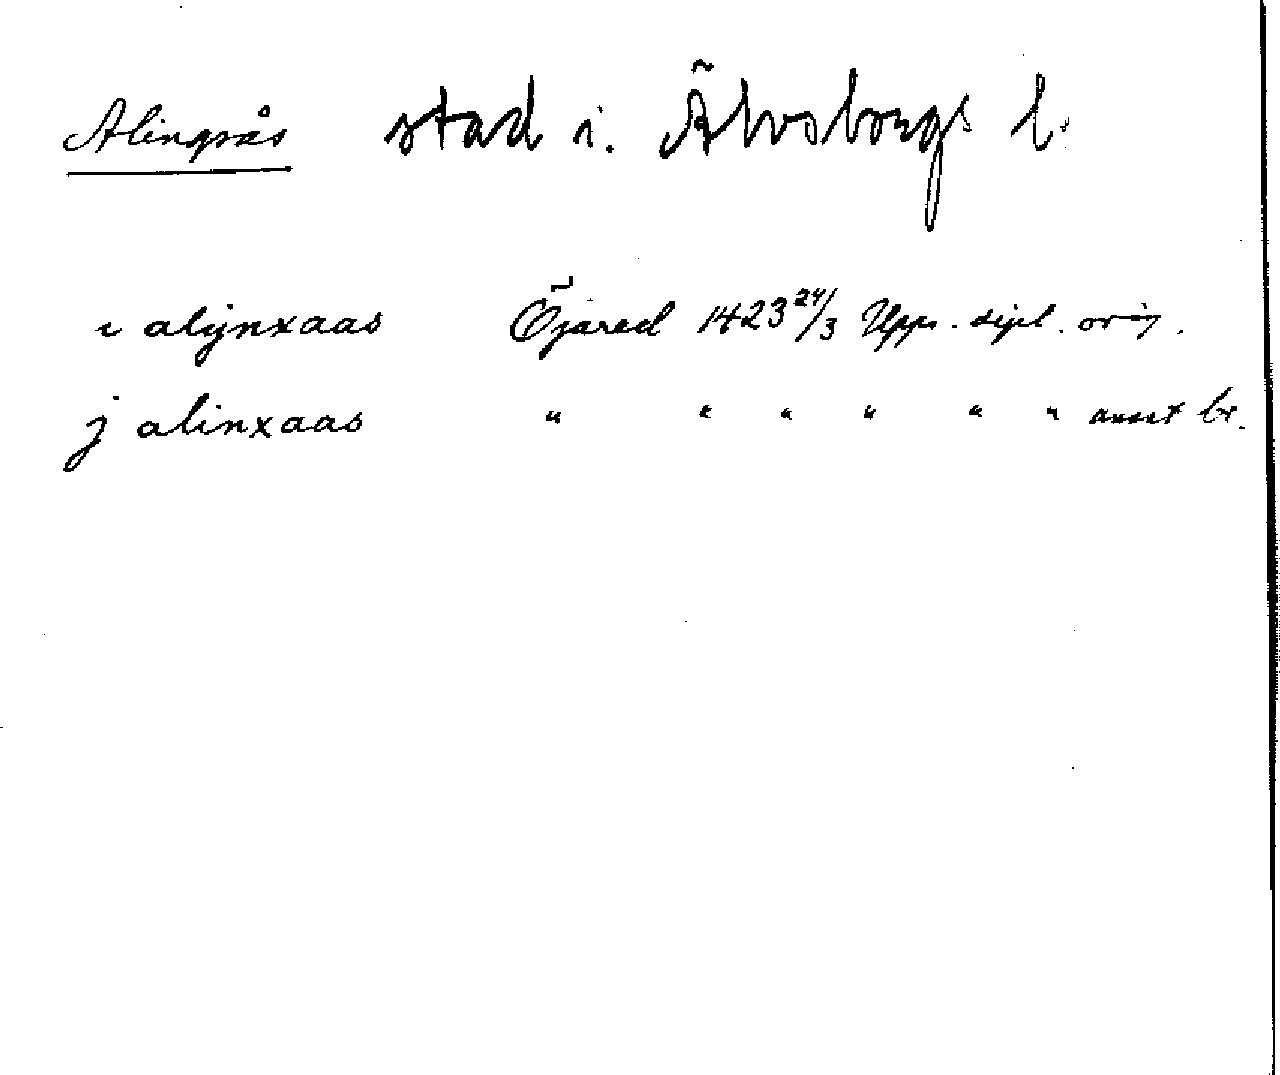 Alingsås stad i. Älvsborgs l.
i alijnxaas Öjared 1423 24/3 Upps. dipl. orig.
j alinxaas " " " " " " annat br.